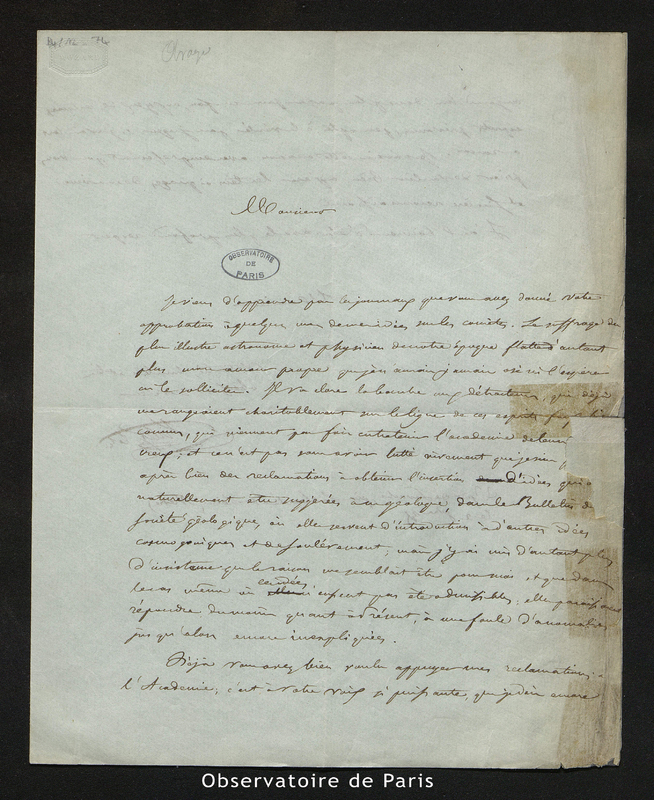 Arago
Monsieur
OBSERVATOIRE
DE
PARIS
Je viens d'apprendre par les journaux que vous avez donné votre
approbation à quelques unes de mes idées sur les comètes. Le suffrage du
plus illustre astronome et physicien de notre époque flatte d'autant
plus mon amour propre que je n'aurais jamais osé ni l'espérer
ni le solliciter. Il va clore la bouche à mes détracteurs, qui déjà
me rangeaient charitablement sur la ligne de ces esprits
connus, qui viennent par fois entretenir l'académie de leurs
et ce n'est pas sans avoir lutté vivement que je suis
après bien des reclamations à obtenir l'insertion d'idées qui
naturellement été suggérées à un géologue, dans le Bulletin de
Société géologique, où elles servent d'introduction à d'autres idées
cosmogoniques et de soulèvement; mais j'y ai mis d'autant plus
d'insistance que la raison me semblait être pour moi, et que dans
le cas même où ces idées n'eussent pas été admissibles, elles paraissaient
répondre du moins quant à présent, à une foule d'anomalies
jusqu'alors encore inexpliquées.
Déjà vous avez bien voulu appuyer mes reclamations à
l'Académie; c'est à votre voix si puissante, que je dois encore
Observatoire de Paris